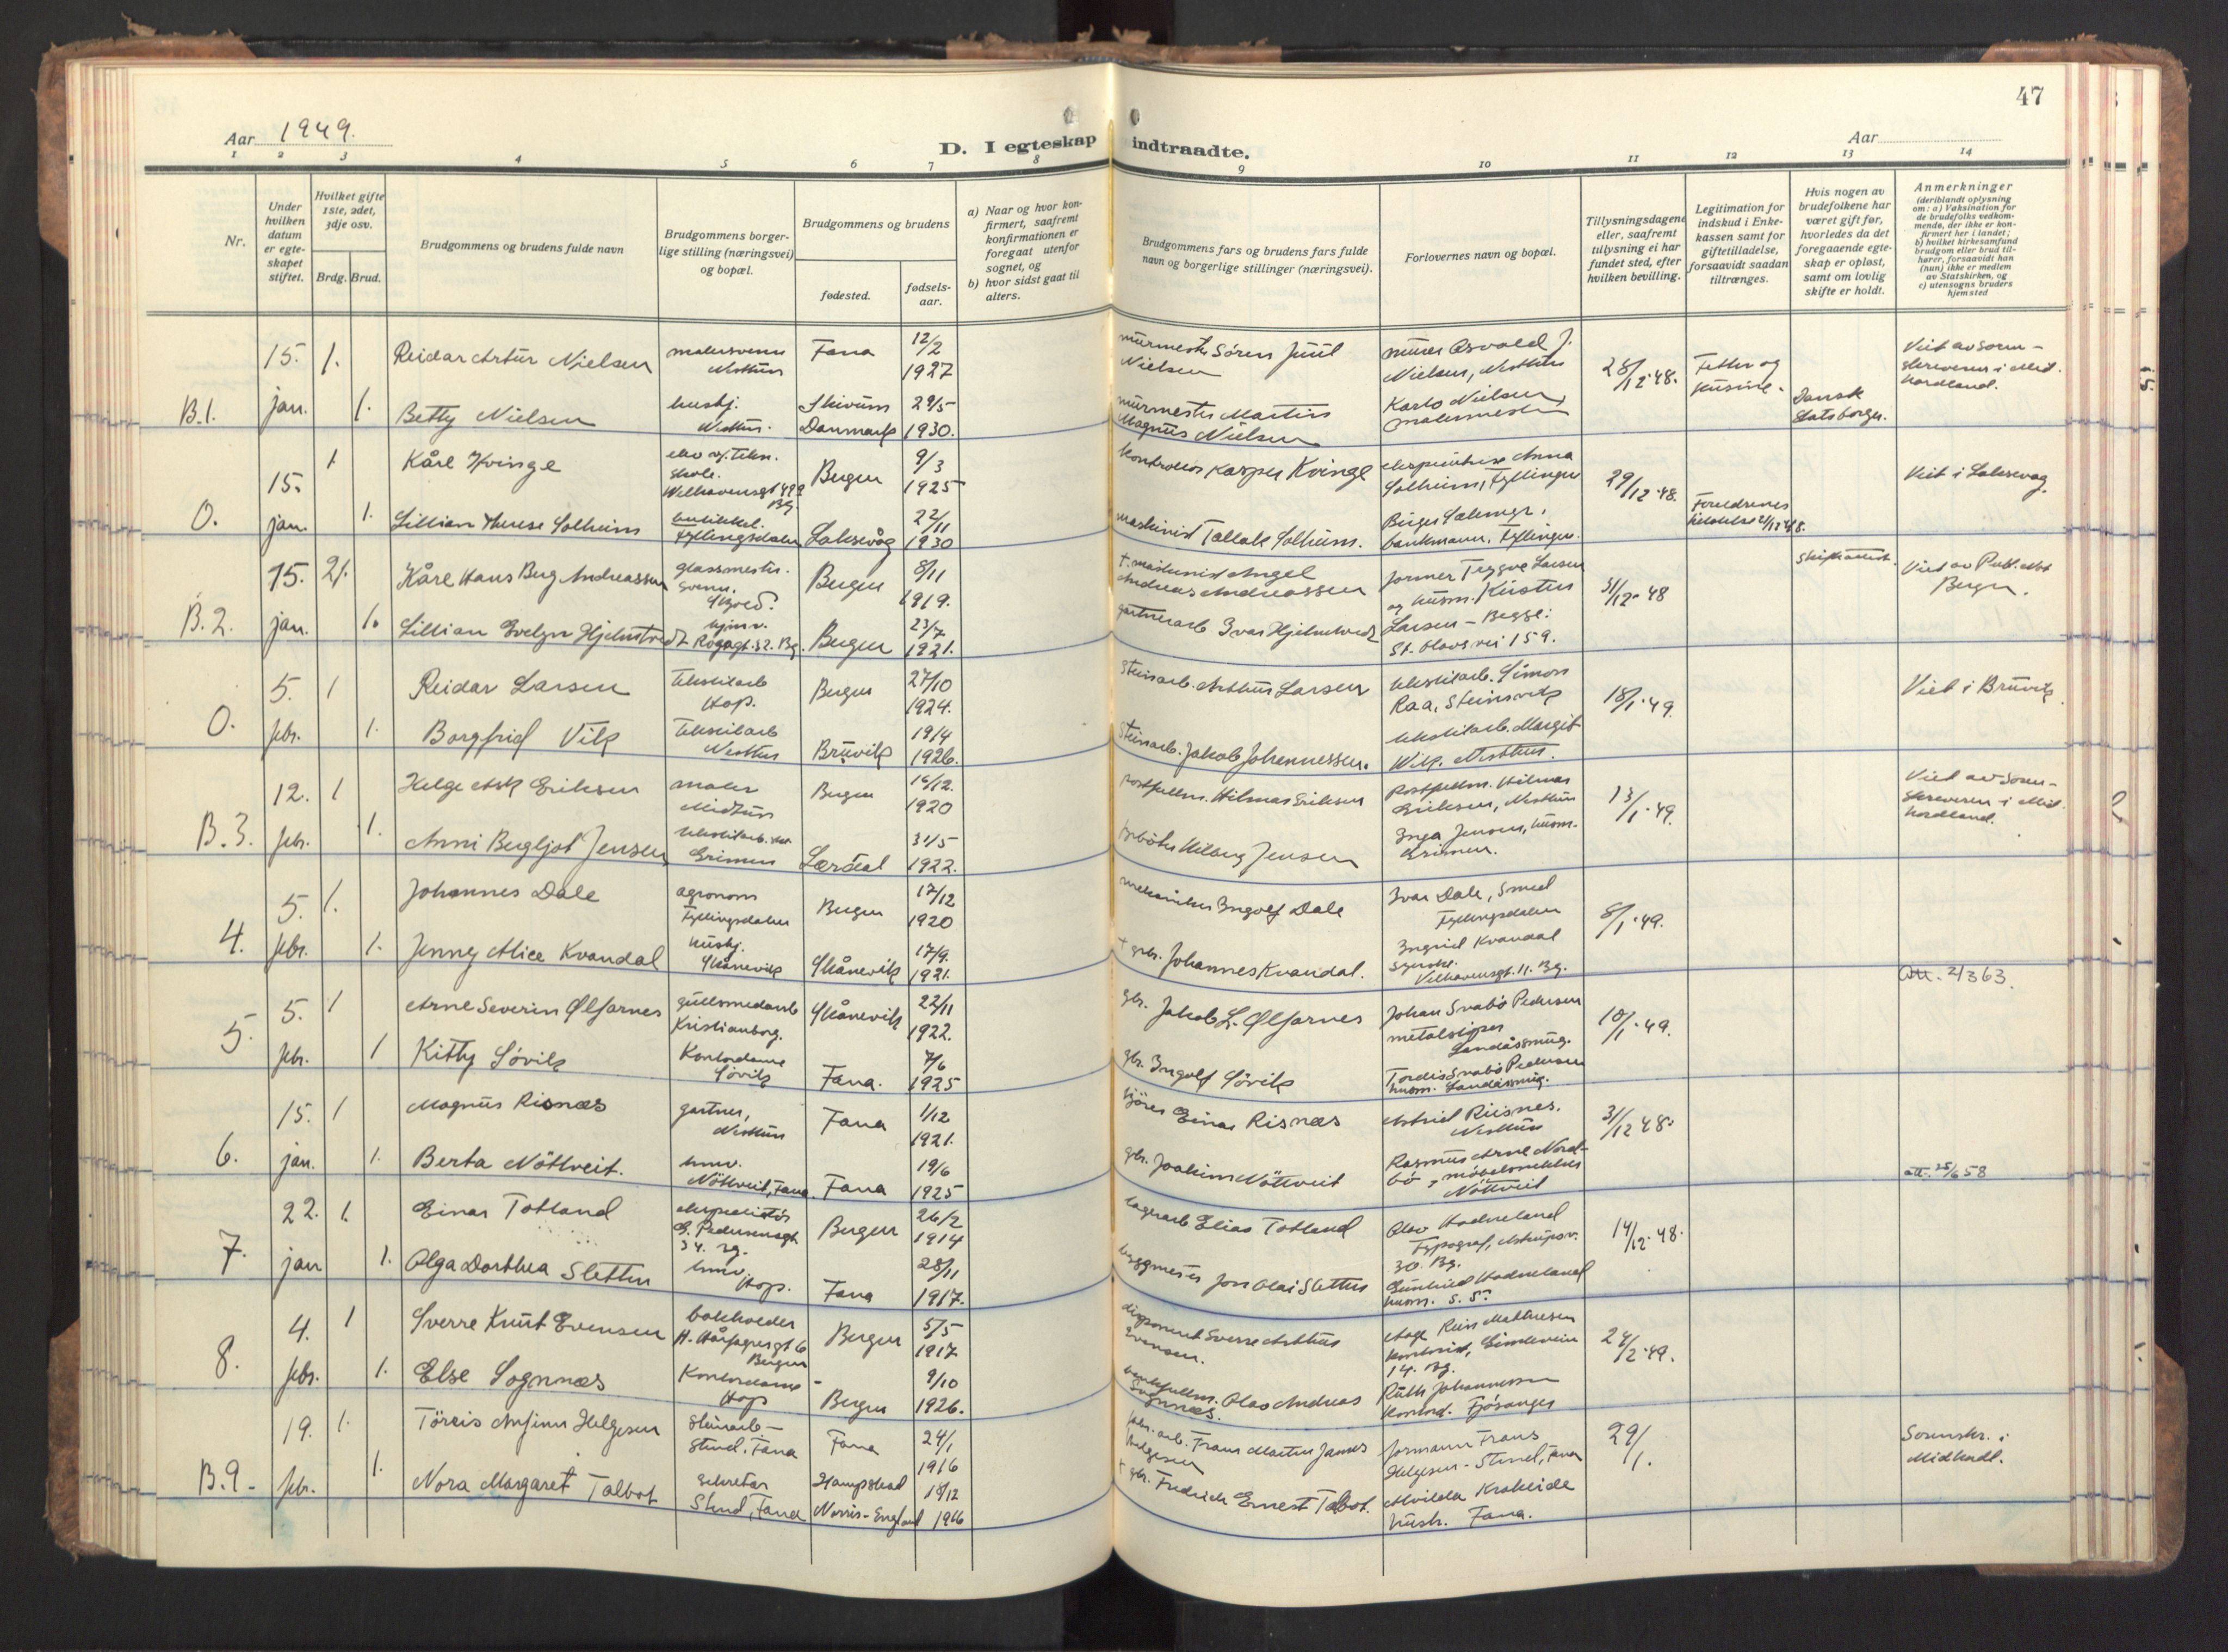 47
Aar 1949.
D. I egteskap indtraadte.
Aar
1 2 3 4 5 6 7 8 9 10 11 12 13 14
Nr.
Under hvilken datum er egteskapet stiftet.
Hvilket gifte 1ste, 2det, 3dje osv.
Brdg. Brud.
Brudgommens og brudens fulde navn
Brudgommens borgerlige stilling (næringsvei) og bopæl.
Brudgommens og brudens
fødested.
fødselsaar.
a) Naar og hvor konfirmert, saafremt konfirmationen er foregaat utenfor sognet, og
b) hvor sidst gaat til alters.
Brudgommens fars og brudens fars fulde navn og borgerlige stillinger (næringsvei).
Forlovernes navn og bopæl.
Tillysningsdagene eller, saafremt tillysning ei har fundet sted, efter hvilken bevilling.
Legitimation for indskud i Enkekassen samt for giftetilladelse, forsaavidt saadan tiltrænges.
Hvis nogen av brudefolkene har været gift før, hvorledes da det foregaaende egteskap er opløst, samt om lovlig skifte er holdt.
Anmerkninger (deriblandt oplysning om: a) Vaksination for de brudefolks vedkommende, der ikke er konfirmert her i landet; b) hvilket kirkesamfund brudgom eller brud tilhører, forsaavidt han (hun) ikke er medlem av Statskirken, og c) utensogns bruders hjemsted
B.1. 15. jan. 1. Reidar Artur Nielsen malersvenn Nesttun Fana 12/2 1927 murmester Sören Juul Nielsen murer Osvald J. Nielsen, Nesttun 28/12-48. Fetter og kusine. Viet av Sorenskriveren i Midhordland.
1. Betty Nielsen hushj. Nesttun. Skivum Danmark 29/5 1930. murmester Martin Magnus Nielsen Karlo Nielsen, malermester Dansk statsborger.
O. 15. jan. 1 Kåre Kvinge elev v. tekn. skole. Welhavensgt 49 Bg. Bergen 9/3 1925 kontrollör Kasper Kvinge ekspeditrise Anna Solheim, Fyllingen 29/12-48. Viet i Laksevåg.
1. Lillian Therese Solheim Fyllingsdalen Laksevåg 22/11 1930 maskinist Tallak Solheim. Birger bankmann, Fyllingen. Foreldrenes
B.2. 15. jan. 2. Kåre Hans Berg Andreassen glassmester svenn. Skjold. Bergen 8/11 1919. † maskinist Angel Andreas Andreassen former Trygve Larsen og husm. Kirsten Larsen - Begge: St. Olavs vei 159. 31/12-48 Viet av Publ. Not Bergen.
1. Lillian Evelyn Hjelmtvedt hjemv. Bg. Bergen 23/7 1921. gartnerarb Ivar Hjelmtvedt
O. 5. febr. 1 Reidar Larsen tekstilarb Hop. Bergen 27/10 1924. steinarb. Arthur Larsen tekstilarb. Simon Raa, Steinsvik 18/1-49. Viet i Bruvik.
1. Borgfrid Vik tekstilarb Nesttun Bruvik 19/4 1926. Steinarb. Jakob Johannessen. tekstilarb. Margit Wik. Nesttun.
B.3. 12. febr. 1 Helge Ask Eriksen maler Midtun Bergen 16/12. 1920 postfullm. Hilmar Eriksen Postfullm. Hilmar Eriksen, Nesttun 13/1-49. Viet av Sorenskriveren i Midhordland.
1. Anni Bergljot Jensen tekstilarb. Grimen Lærdal 31/5 1922. Jensen Inga Jensen, husm. Grimen.
4. 5. febr. 1. Johannes Dale agronom Fyllingsdalen Bergen 17/12 1920 mekaniker Ingolf Dale Ivar Dale, Smed Fyllingsdalen 8/1-49.
1. Jenny Alice Kvandal hushj. Skånevik Skånevik 17/9. 1921. † gbr. Johannes Kvandal. Ingrid Kvandal Welhavensgt. 11. Bg.
5. 5. febr. 1 Arne Severin Ølfarnes gullsmedarb Kristianborg. Skånevik 22/11 1922. gbr. Jakob L. Ølfarnes Johan Svabö Pedersen metalsliper Landåssmug. 10/1-49. att. 2/3 63.
1 Kitty Sövik Kontordame Sövik Fana. 7/6 1925 gbr. Ingolf Sövik Tordis Svabö Pedersen husm. Landåssmug.
6. 15. jan. 1 Magnus Risnæs gartner, Nesttun Fana 1/12 1921. Einar Risnæs Astrid Riisnes. Nesttun 31/12 48.
1. Berta Nöttveit. hmv. Nöttveit, Fana. Fana 19/6 1925 gbr. Joakim Nöttveit Rasmus Arne Nordbö, möbelsnekker Nöttveit att. 25/6 58
7. 22. jan 1. Einar Totland ekspeditör G. Pedersensgt. 34. Bg. Bergen 26/2 1914 lagerarb Elias Totland Olav Hadneland Typograf, Astrupsv. 30. Bg. 14/12-48.
1. Olga Dorthea Sletten hmv. Hop. Fana 28/11 1917. byggmester Jon Olai Sletten Gunhild Hadneland husm. S. S.
8. 4. febr. 1 Sverre Knut Evensen bokholder H. Hårfagresgt 6 Bergen Bergen 5/5 1917 disponent Sverre Arthur Evensen. Aage Riis Mathiesen kontorist, 14. Bg. 24/2-49.
1. Else Sognnæs Kontordame Hop Bergen 9/10 1926. bankfullm. Olav Andreas Sognnæs. Ruth Johannessen kontord. Fjösanger
B.9. 19. febr. 1. Arnfinn Helgesen steinarb - Stend, Fana Fana 24/1 1916 Frans Martin James Helgesen formann Frans Helgesen - Stend, Fana 29/1. Sorenskr. i Midhodl.
1. Nora Margaret Talbot sekretær Stend, Fana Norris-England 18/12 1916 † gbr. Fredrick Ernest Talbot. Alvilda Krokeide hustr. Fana.